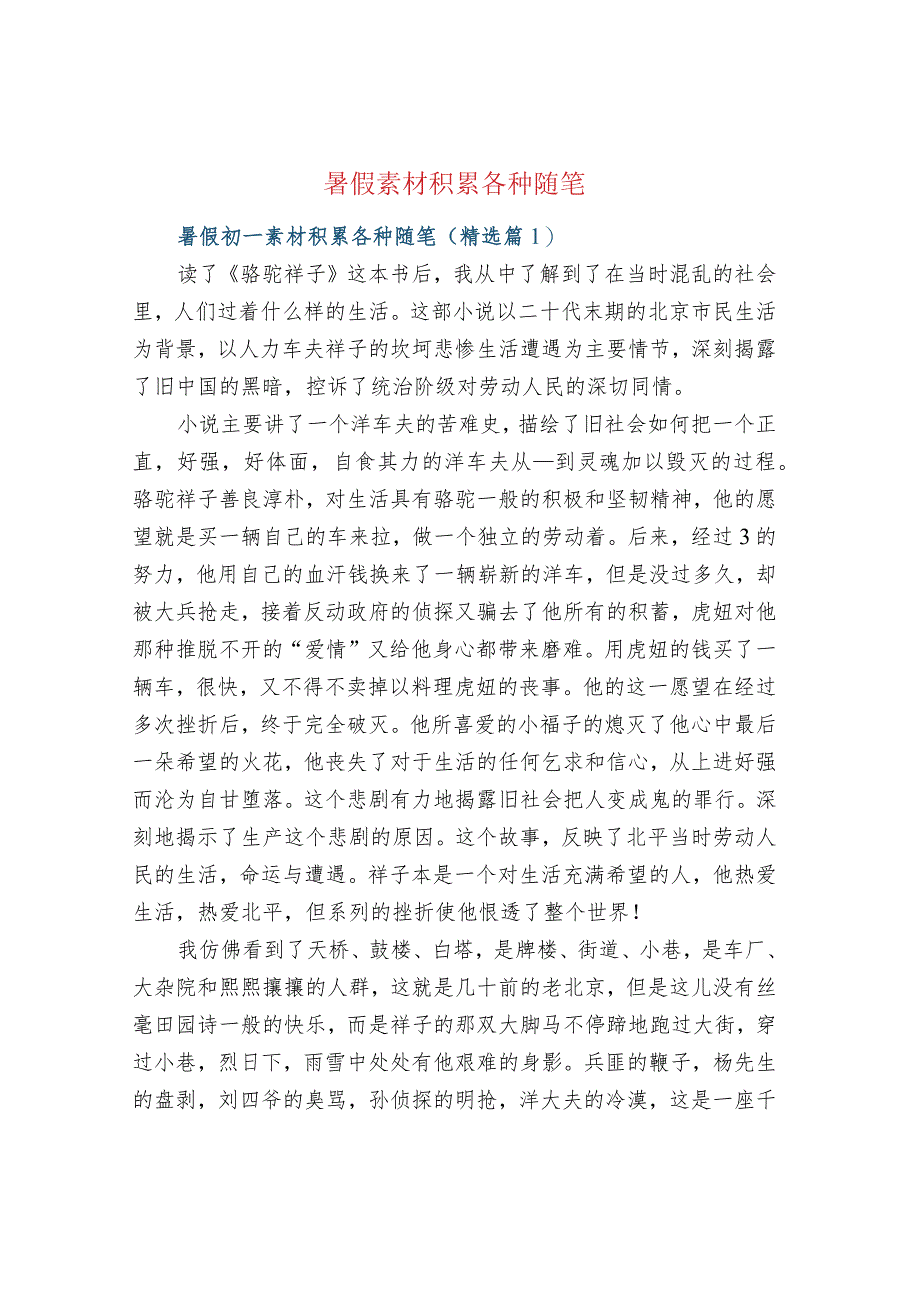 暑假素材积累各种随笔
暑假初一素材积累各种随笔（精选篇1）
读了《骆驼祥子》这本书后，我从中了解到了在当时混乱的社会
里，人们过着什么样的生活。这部小说以二十代末期的北京市民生活
为背景，以人力车夫祥子的坎坷悲惨生活遭遇为主要情节，深刻揭露
了旧中国的黑暗，控诉了统治阶级对劳动人民的深切同情。
小说主要讲了一个洋车夫的苦难史，描绘了旧社会如何把一个正
直，好强，好体面，自食其力的洋车夫从—到灵魂加以毁灭的过程。
骆驼祥子善良淳朴，对生活具有骆驼一般的积极和坚韧精神，他的愿
望就是买一辆自己的车来拉，做一个独立的劳动着。后来，经过3的
努力，他用自己的血汗钱换来了一辆崭新的洋车，但是没过多久，却
被大兵抢走，接着反动政府的侦探又骗去了他所有的积蓄，虎妞对他
那种推脱不开的“爱情”又给他身心都带来磨难。用虎妞的钱买了一
辆车，很快，又不得不卖掉以料理虎妞的丧事。他的这一愿望在经过
多次挫折后，终于完全破灭。他所喜爱的小福子的熄灭了他心中最后
一朵希望的火花，他丧失了对于生活的任何乞求和信心，从上进好强
而沦为自甘堕落。这个悲剧有力地揭露旧社会把人变成鬼的罪行。深
刻地揭示了生产这个悲剧的原因。这个故事，反映了北平当时劳动人
民的生活，命运与遭遇。祥子本是一个对生活充满希望的人，他热爱
生活，热爱北平，但系列的挫折使他恨透了整个世界！
我仿佛看到了天桥、鼓楼、白塔，是牌楼、街道、小巷，是车厂、
大杂院和熙熙攘攘的人群，这就是几十前的老北京，但是这儿没有丝
毫田园诗一般的快乐，而是祥子的那双大脚马不停蹄地跑过大街，穿
过小巷，烈日下，雨雪中处处有他艰难的身影。兵匪的鞭子，杨先生
的盘剥，刘四爷的臭骂，孙侦探的明抢，洋大夫的冷漠，这是一座千